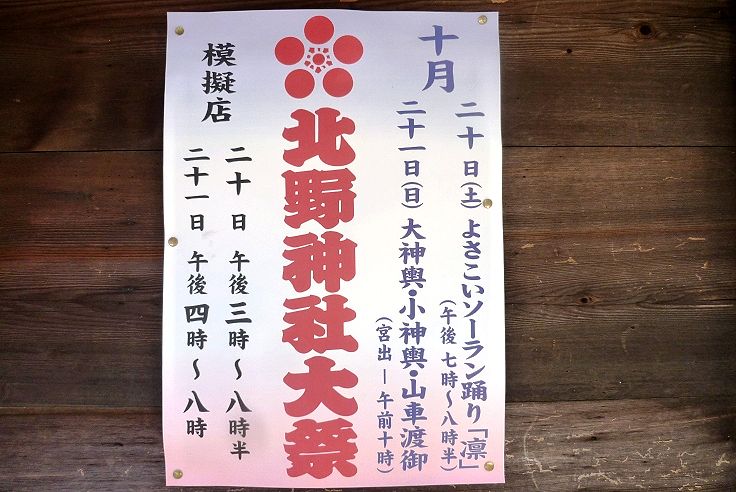 十月
二十日(土)よさこいソーラン踊り「凛」
(午後七時～八時半)
二十一日(日)大神輿・小神輿・山車渡御
(宮出ー午前十時)
北野神社大祭
模擬店
二十日 午後三時～八時半
二十一日 午後四時～八時